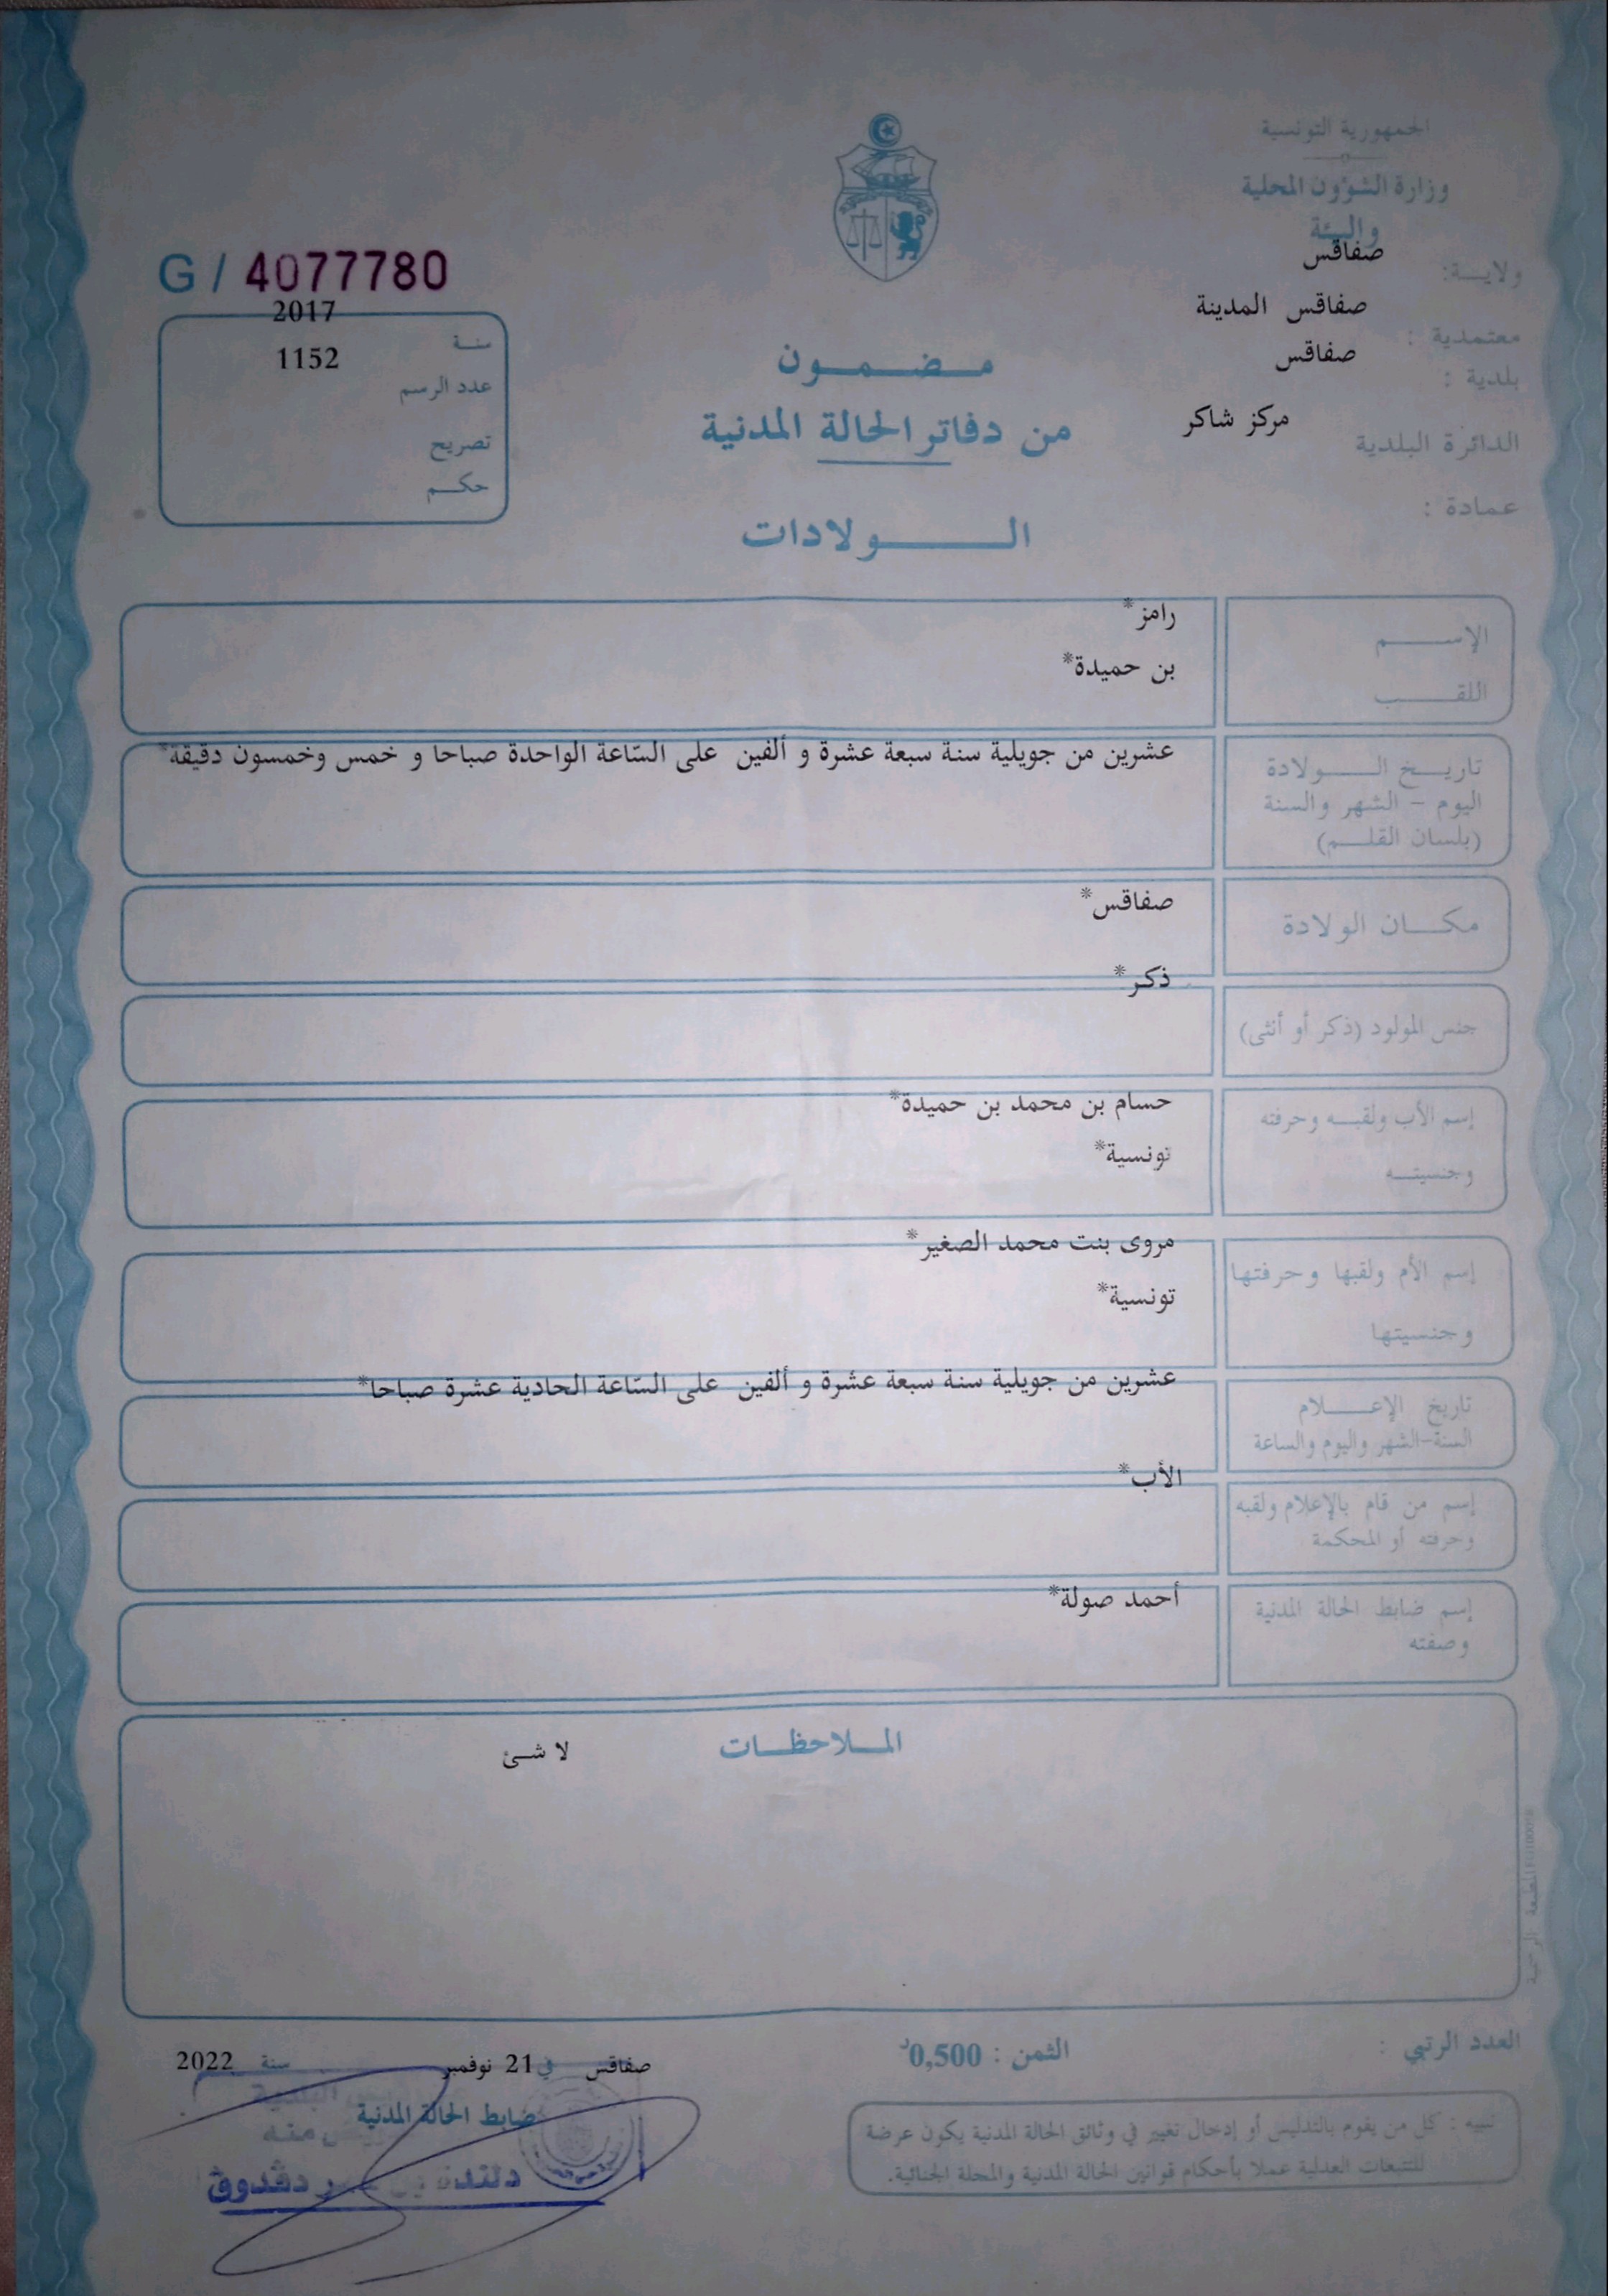 الجمهورية التونسية
وزارة الشؤون المحلية
والبيئة
ولايـــة: صفاقس
معتمدية : صفاقس المدينة
بلدية : صفاقس
الدائرة البلدية مركز شاكر
عمادة :
مـضـمـون
من دفاتر الحالة المدنية
الـــولادات
G / 4077780
سنـة 2017
عدد الرسم 1152
تصريح
حكـم
الإســـم رامز*
اللقـــب بن حميدة*
تاريـخ الـــولادة عشرين من جويلية سنة سبعة عشرة و ألفين على السّاعة الواحدة صباحا و خمس وخمسون دقيقة*
اليوم - الشهر والسنة
(بلسان القلــم)
مكــان الولادة صفاقس*
جنس المولود (ذكر أو أنثى) ذكر*
إسم الأب ولقبـه وحرفته حسام بن محمد بن حميدة*
وجنسيتــه تونسية*
إسم الأم ولقبها وحرفتها مروى بنت محمد الصغير*
وجنسيتها تونسية*
تاريخ الإعــلام عشرين من جويلية سنة سبعة عشرة و ألفين على السّاعة الحادية عشرة صباحا*
السنة-الشهر واليوم والساعة
إسم من قام بالإعلام ولقبه الأب*
وحرفته أو المحكمة
إسم ضابط الحالة المدنية أحمد صولة*
وصفته
المـلاحظـات
لا شئ
العدد الرتبي :
الثمن : 0,500د
صفاقس في 21 نوفمبر سنة 2022
ضابط الحالة المدنية
تنبيه : كل من يقوم بالتدليس أو إدخال تغيير في وثائق الحالة المدنية يكون عرضة
للتتبعات العدلية عملا بأحكام قوانين الحالة المدنية والمجلة الجنائية.